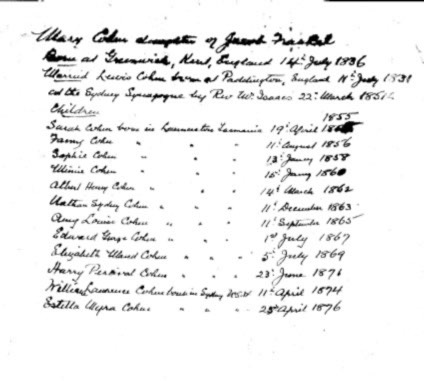 Mary Cohen daughter of Jacob Frankel
Born at Greenwich, Kent, England 14th July 1836
Married Lewis Cohen born at Paddington, England 11th July 1831
at the Sydney Synagogue by Rev Mr Isaacs 22nd March 1854
Children
1855
Sarah Cohen born in Launceston Tasmania 19th April
Fanny Cohen " " " 11th August 1856
Sophia Cohen " " " 13th January 1858
Minnie Cohen " " " 15th January 1860
Albert Henry Cohen " " " 14th March 1862
Nathan Sydney Cohen " " " 11th December 1863
Amy Louise Cohen " " " 11th September 1865
Edward George Cohen " " " 1st July 1867
Elizabeth Maud Cohen " " " 5th July 1869
Harry Percival Cohen " " " 23rd June 1871
William Lawrence Cohen born in Sydney NSW 11th April 1874
Estella Myra Cohen " " " 25th April 1876